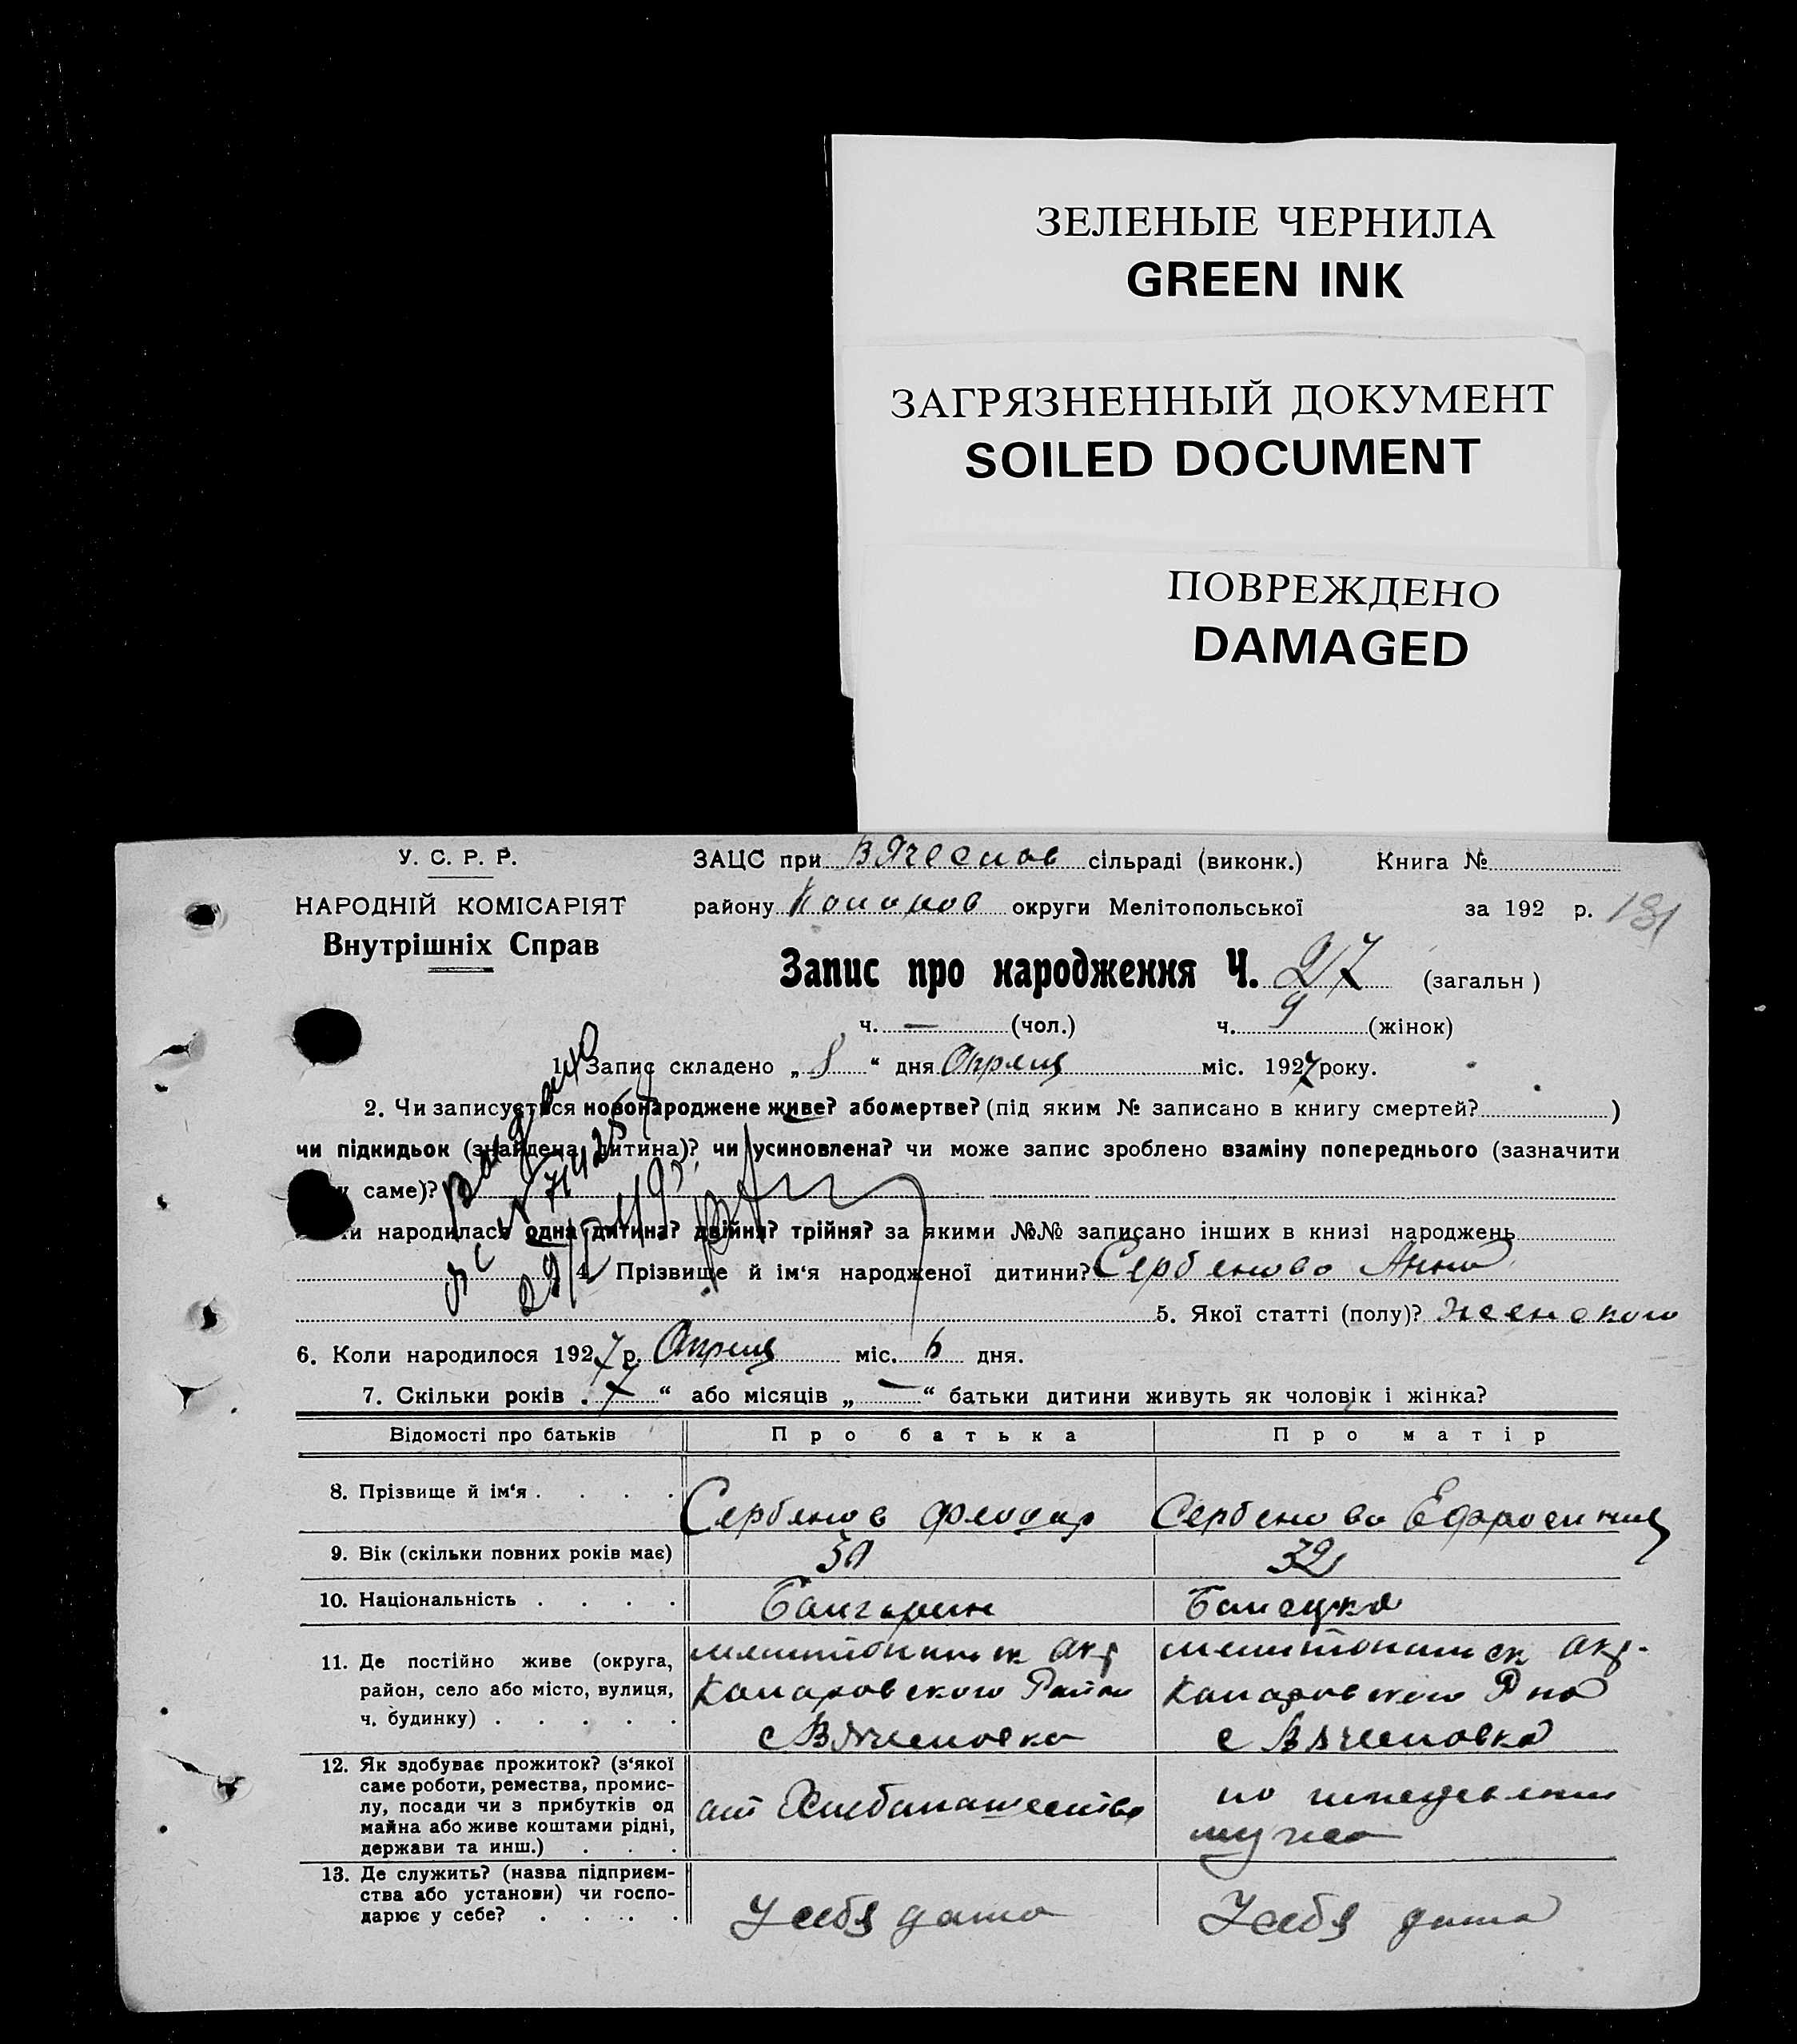 ЗЕЛЕНЫЕ ЧЕРНИЛА
GREEN INK
ЗАГРЯЗНЕННЫЙ ДОКУМЕНТ
SOILED DOCUMENT
ПОВРЕЖДЕНО
DAMAGED
У. С. Р. Р.
НАРОДНІЙ КОМІСАРІЯТ
Внутрішніх Справ
ЗАЦС при Вячеслов сільраді (виконк.) Книга №
району округи Мелітопольської за 192 р. 131
Запис про народження Ч. 27 (загальн )
ч. — (чол.) ч. 9 (жінок)
1. Запис складено „ 8 “ дня Апреля міс. 1927 року.
2. Чи записується новонароджене живе? або мертве? (під яким № записано в книгу смертей? )
чи підкидьок (знайдена дитина)? чи усиновлена? чи може запис зроблено взаміну попереднього (зазначити
саме)?
народилась одна дитина? двійня? трійня? за якими №№ записано інших в книзі народжень
4. Прізвище й ім‘я народженої дитини? Сербенова Анна
5. Якої статті (полу)? женского
6. Коли народилося 1927 р. Апреля міс. 6 дня.
7. Скільки років „ 7 “ або місяців „ — “ батьки дитини живуть як чоловік і жінка?
Відомості про батьків Про батька Про матір
8. Прізвище й ім‘я . . . . Сербенов Феодор Сербенова Ефросиния
9. Вік (скільки повних років має) 32
10. Національність . . . . Болгарин
11. Де постійно живе (округа,
район, село або місто, вулиця,
ч. будинку) . . . . .
Мелитопольск окр Мелитопольск окр.
с Вячеславка с Вячеславка
12. Як здобуває прожиток? (з‘якої
саме роботи, ремества, промис-
лу, посади чи з прибутків од
майна або живе коштами рідні,
держави та инш.) . . .
от Хлебопашества
на иждевении
мужа
13. Де служить? (назва підприєм-
ства або установи) чи госпо-
дарює у себе? . . . . .
У себя дома У себя дома